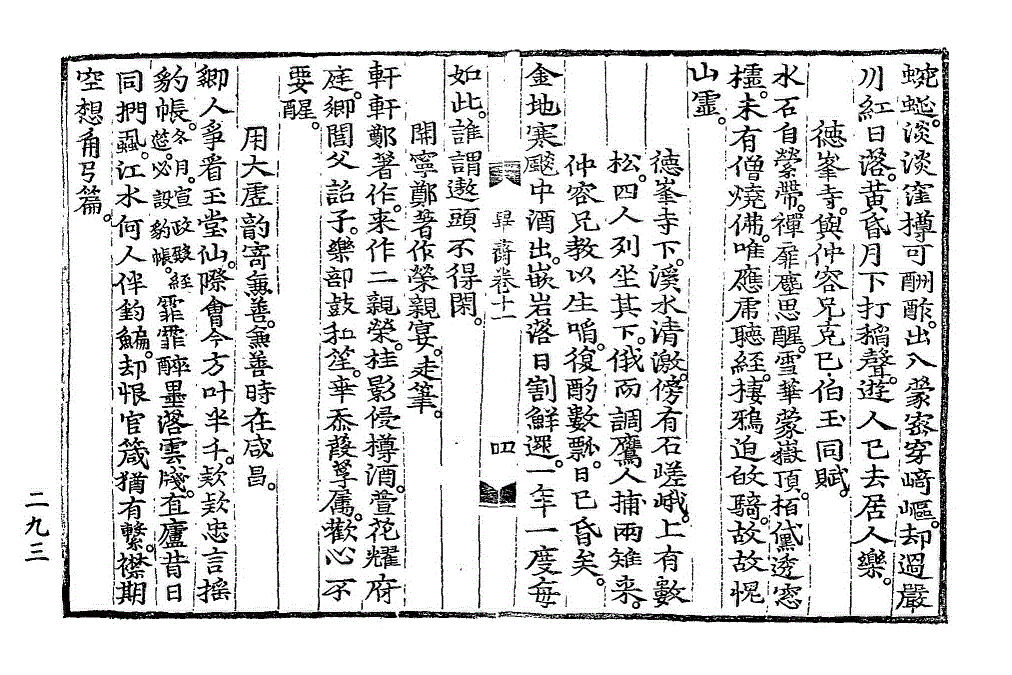 蜿蜒。淡淡窪樽可酬酢。出入蒙密穿﨑嶇。却過嚴
川紅日落。黃昏月下打稻聲。遊人已去居人樂。
德峯寺。與仲容兄克己伯玉同賦。
水石自縈帶。禪扉塵思醒。雪華蒙嶽頂。栢黛透窓
欞。未有僧燒佛。唯應虎聽經。棲鴉迫故騎。故故愰
山靈。
德峯寺下。溪水清澈。傍有石嵯峨。上有數
松。四人列坐其下。俄而調鷹人捕兩雉來。
仲容兄敎以生啗。復酌數瓢。日已昏矣。
金地寒颷中酒出。嵌岩落日割鮮還。一年一度每
如此。誰謂遨頭不得閑。
閑寧鄭著作榮親宴。走筆。
軒軒鄭著作。來作二親榮。桂影侵樽酒。萱花耀府
庭。鄉閭父詔子。樂部鼓和笙。幸忝葭莩属。歡心不
要醒。
用大虛韵寄兼善。兼善時在咸昌。
鄉人爭看玉堂仙。際會今方叶半千。欵欵忠言摇
豹帳。冬月。宣政殿經筵。必設豹帳。霏霏醉墨落雲牋。直廬昔日
同捫蝨。江水何人伴釣鯿。却恨官箴猶有繫。襟期
空想角弓篇。
畢齋卷十一
四
二九三